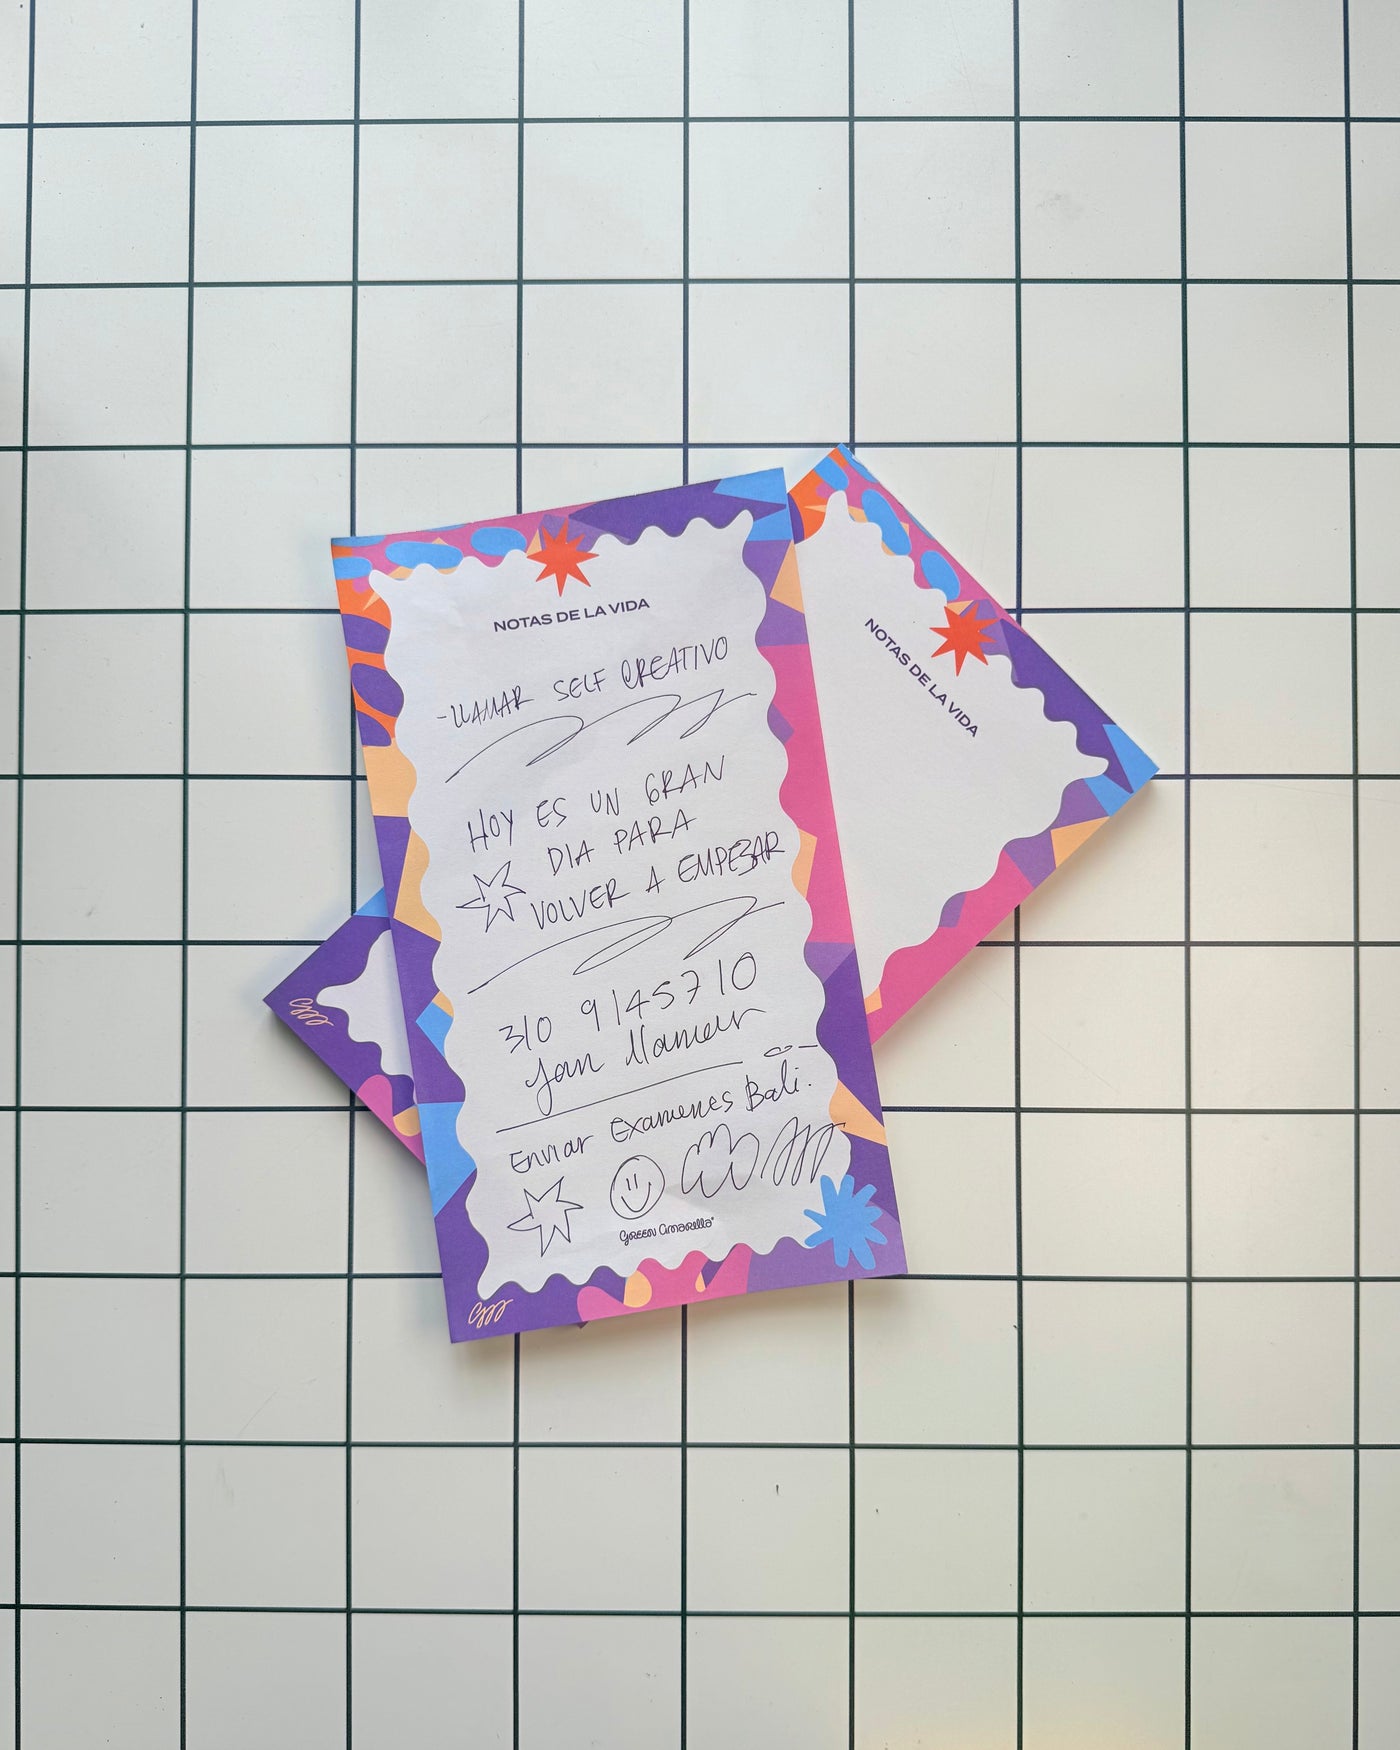 NOTAS DE LA VIDA
-LLAMAR SELF CREATIVO
HOY ES UN GRAN
DIA PARA
VOLVER A EMPEZAR
310 9145710
Enviar Examenes Bali.
GREEN Amarilla
NOTAS DE LA VIDA